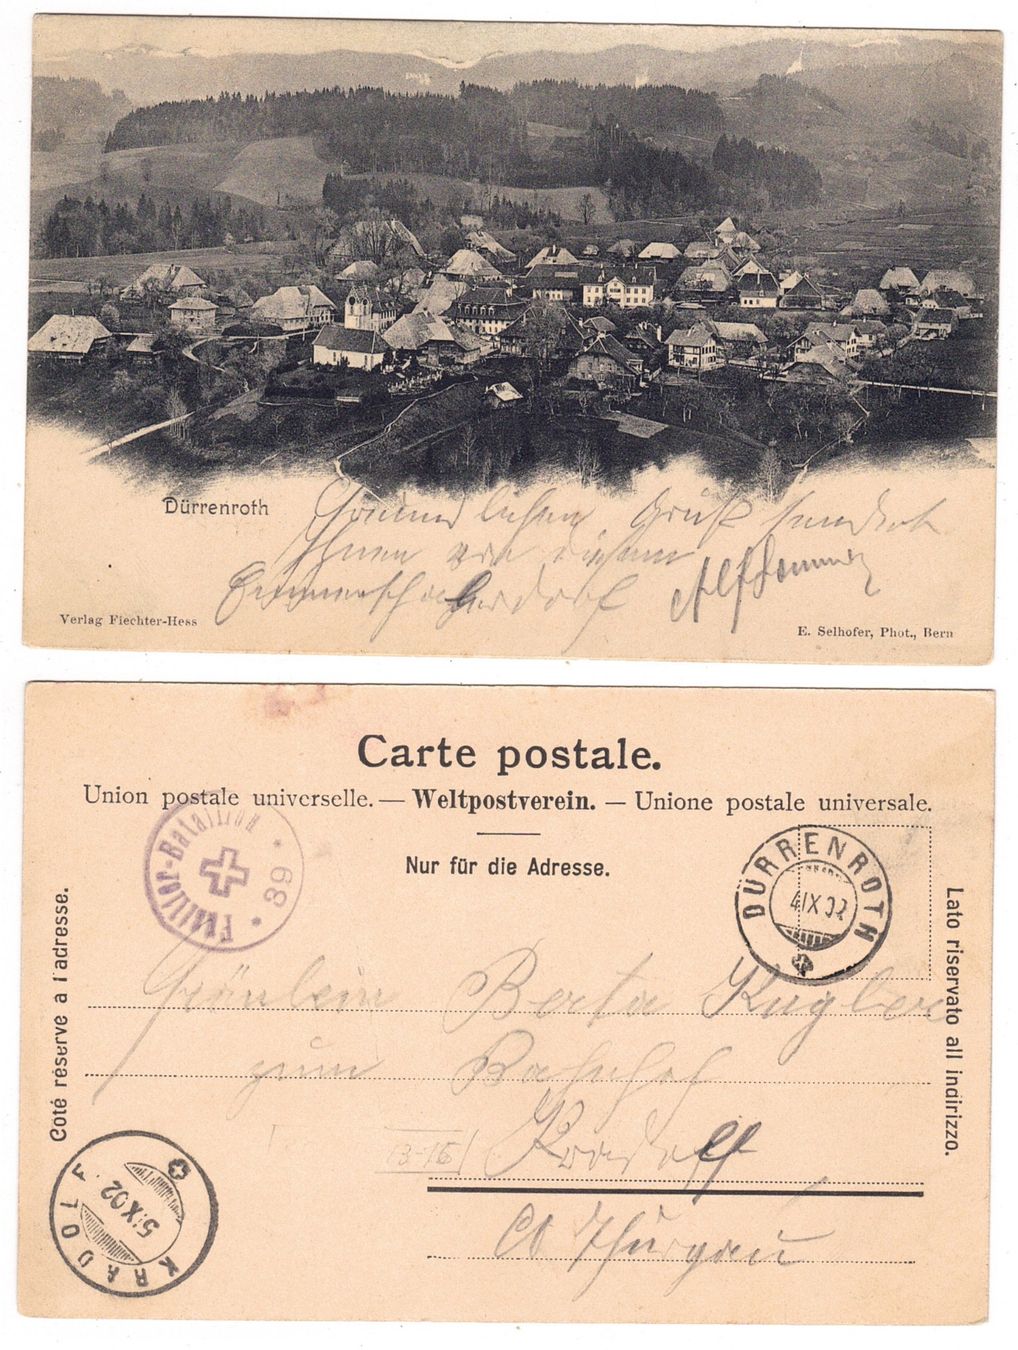 Dürrenroth
lieben Gruß sendet
Ihnen von diesem
Verlag Fiechter-Hess
E. Selhofer, Phot., Bern
Carte postale.
Union postale universelle. — Weltpostverein. — Unione postale universale.
Nur für die Adresse.
Füsilier-Bataillon * 89 *
DÜRRENROTH
4 IX 02
Coté réservé a l'adresse.
Lato riservato all indirizzo.
Fräulein Berta Kugler
zum Bahnhof
Kradolf
Ct Thurgau
13-15
KRADOLF
5 IX 02